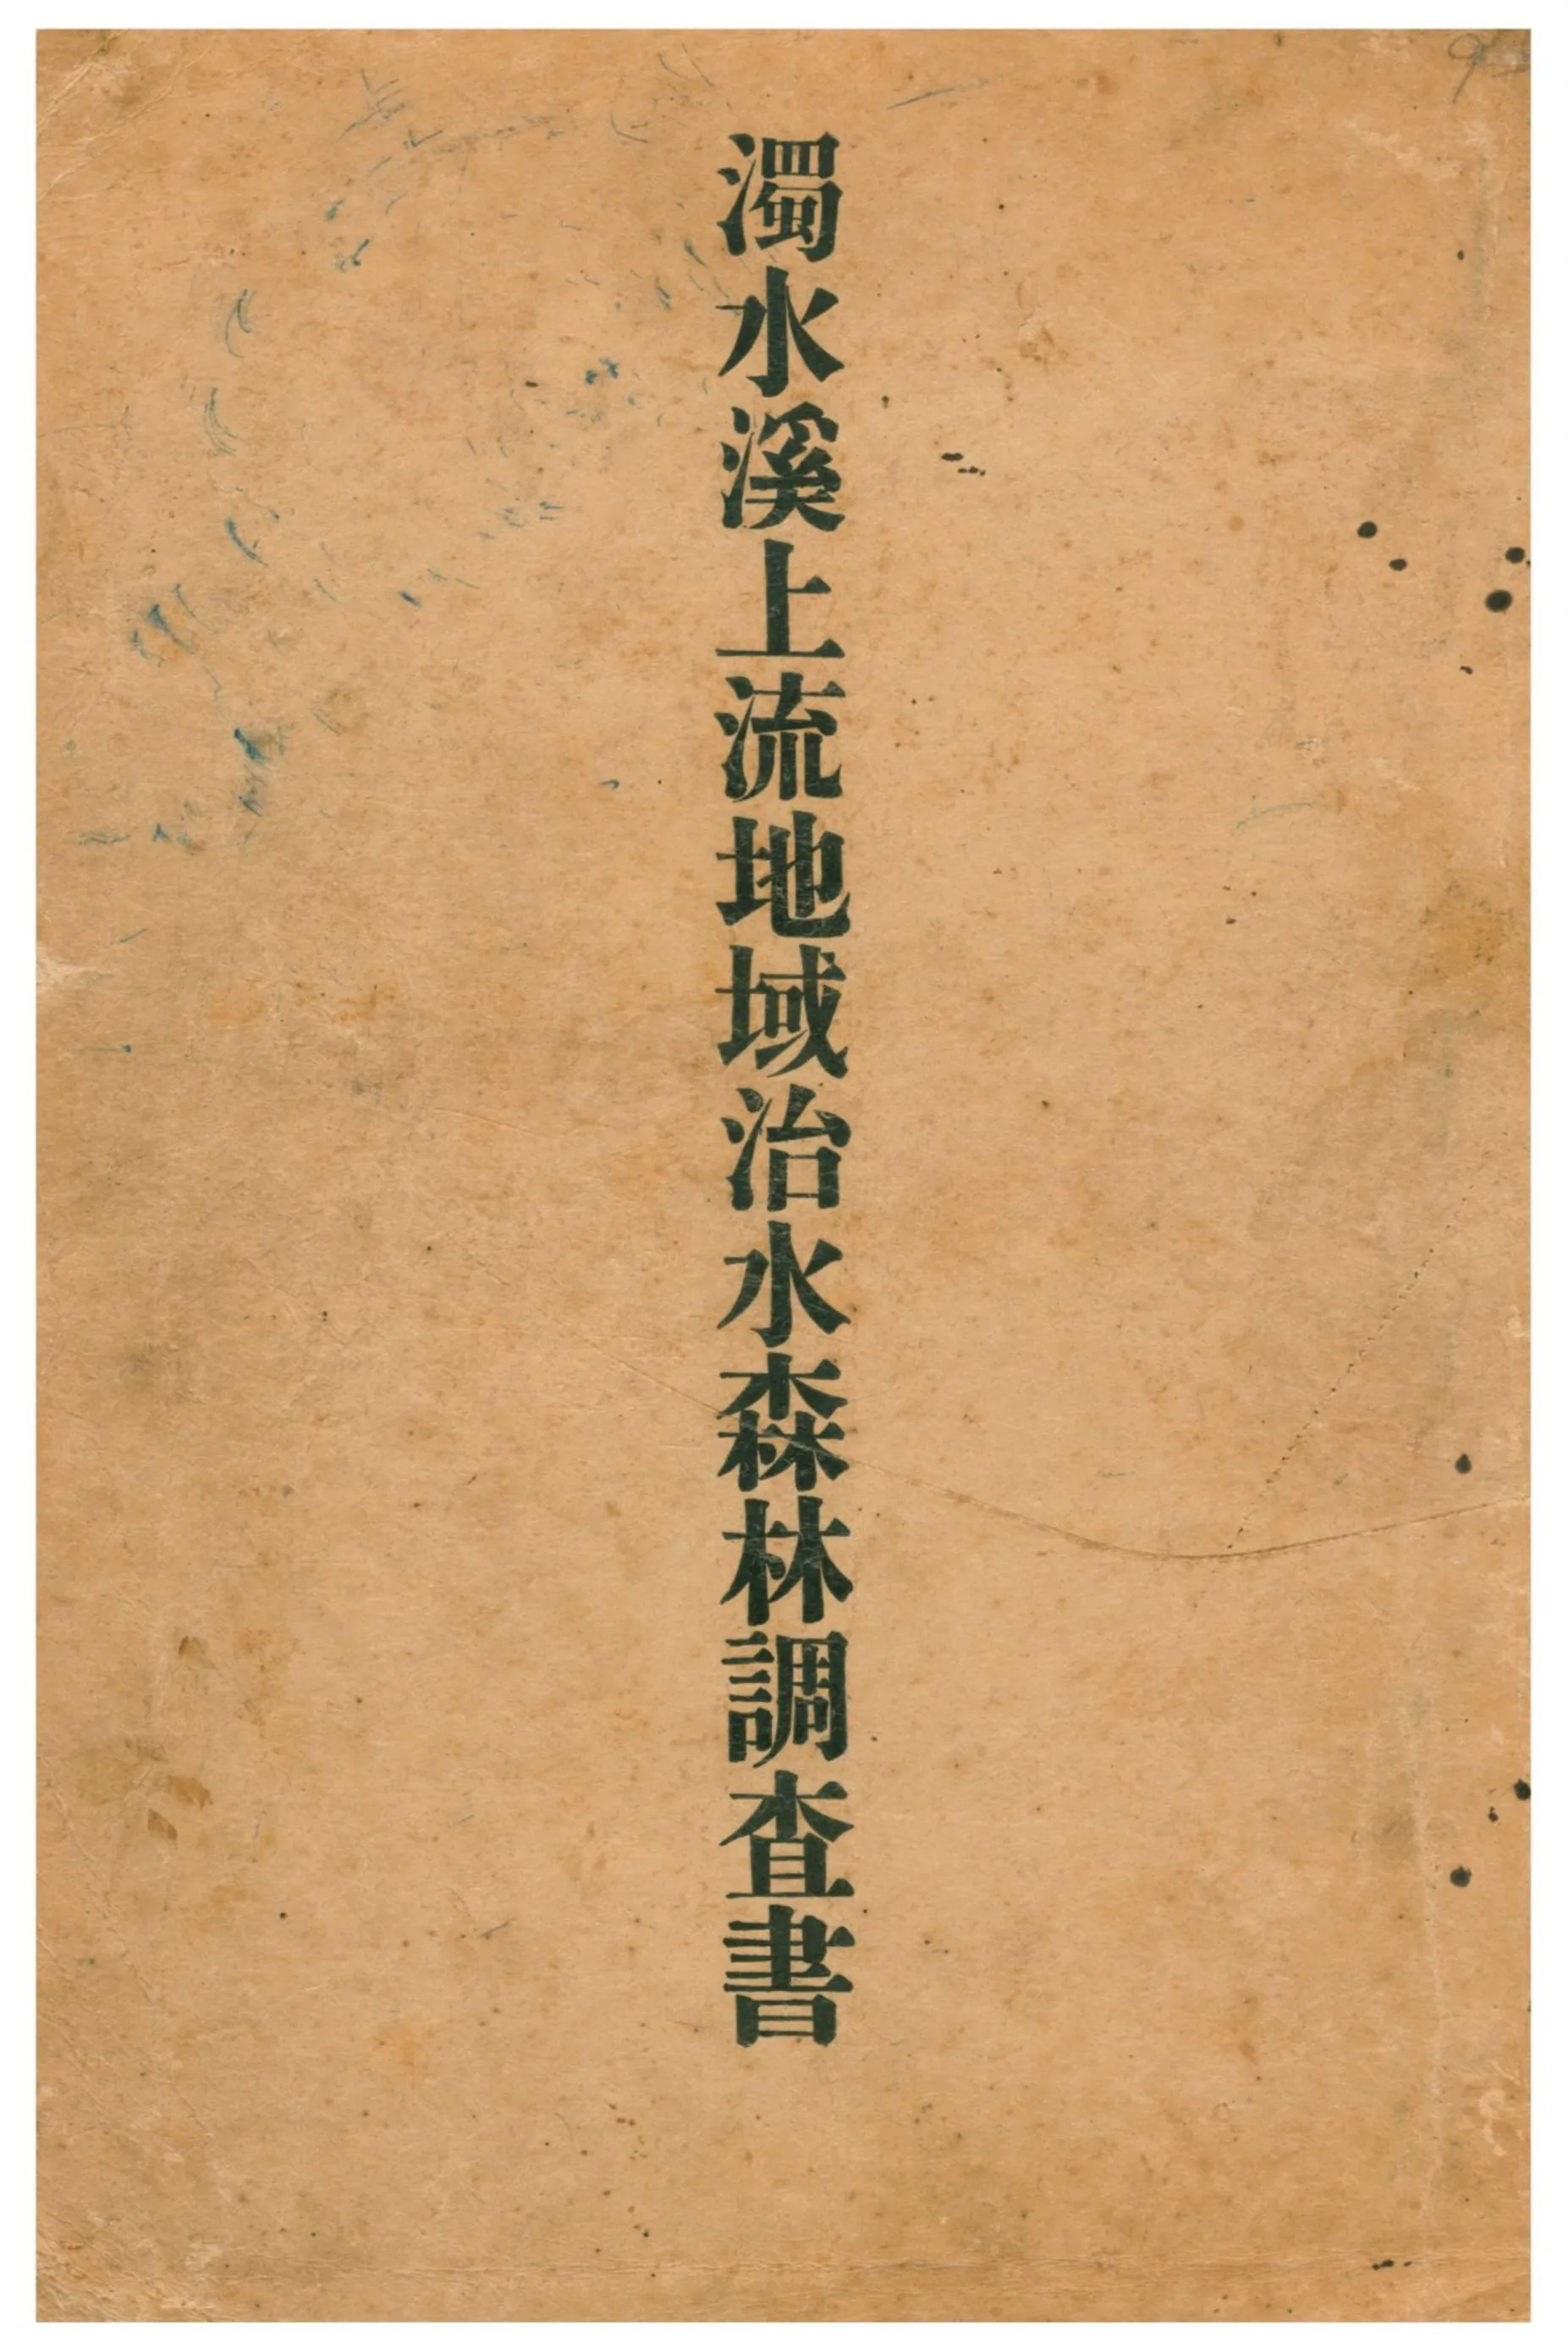 濁水溪上流地域治水森林調査書